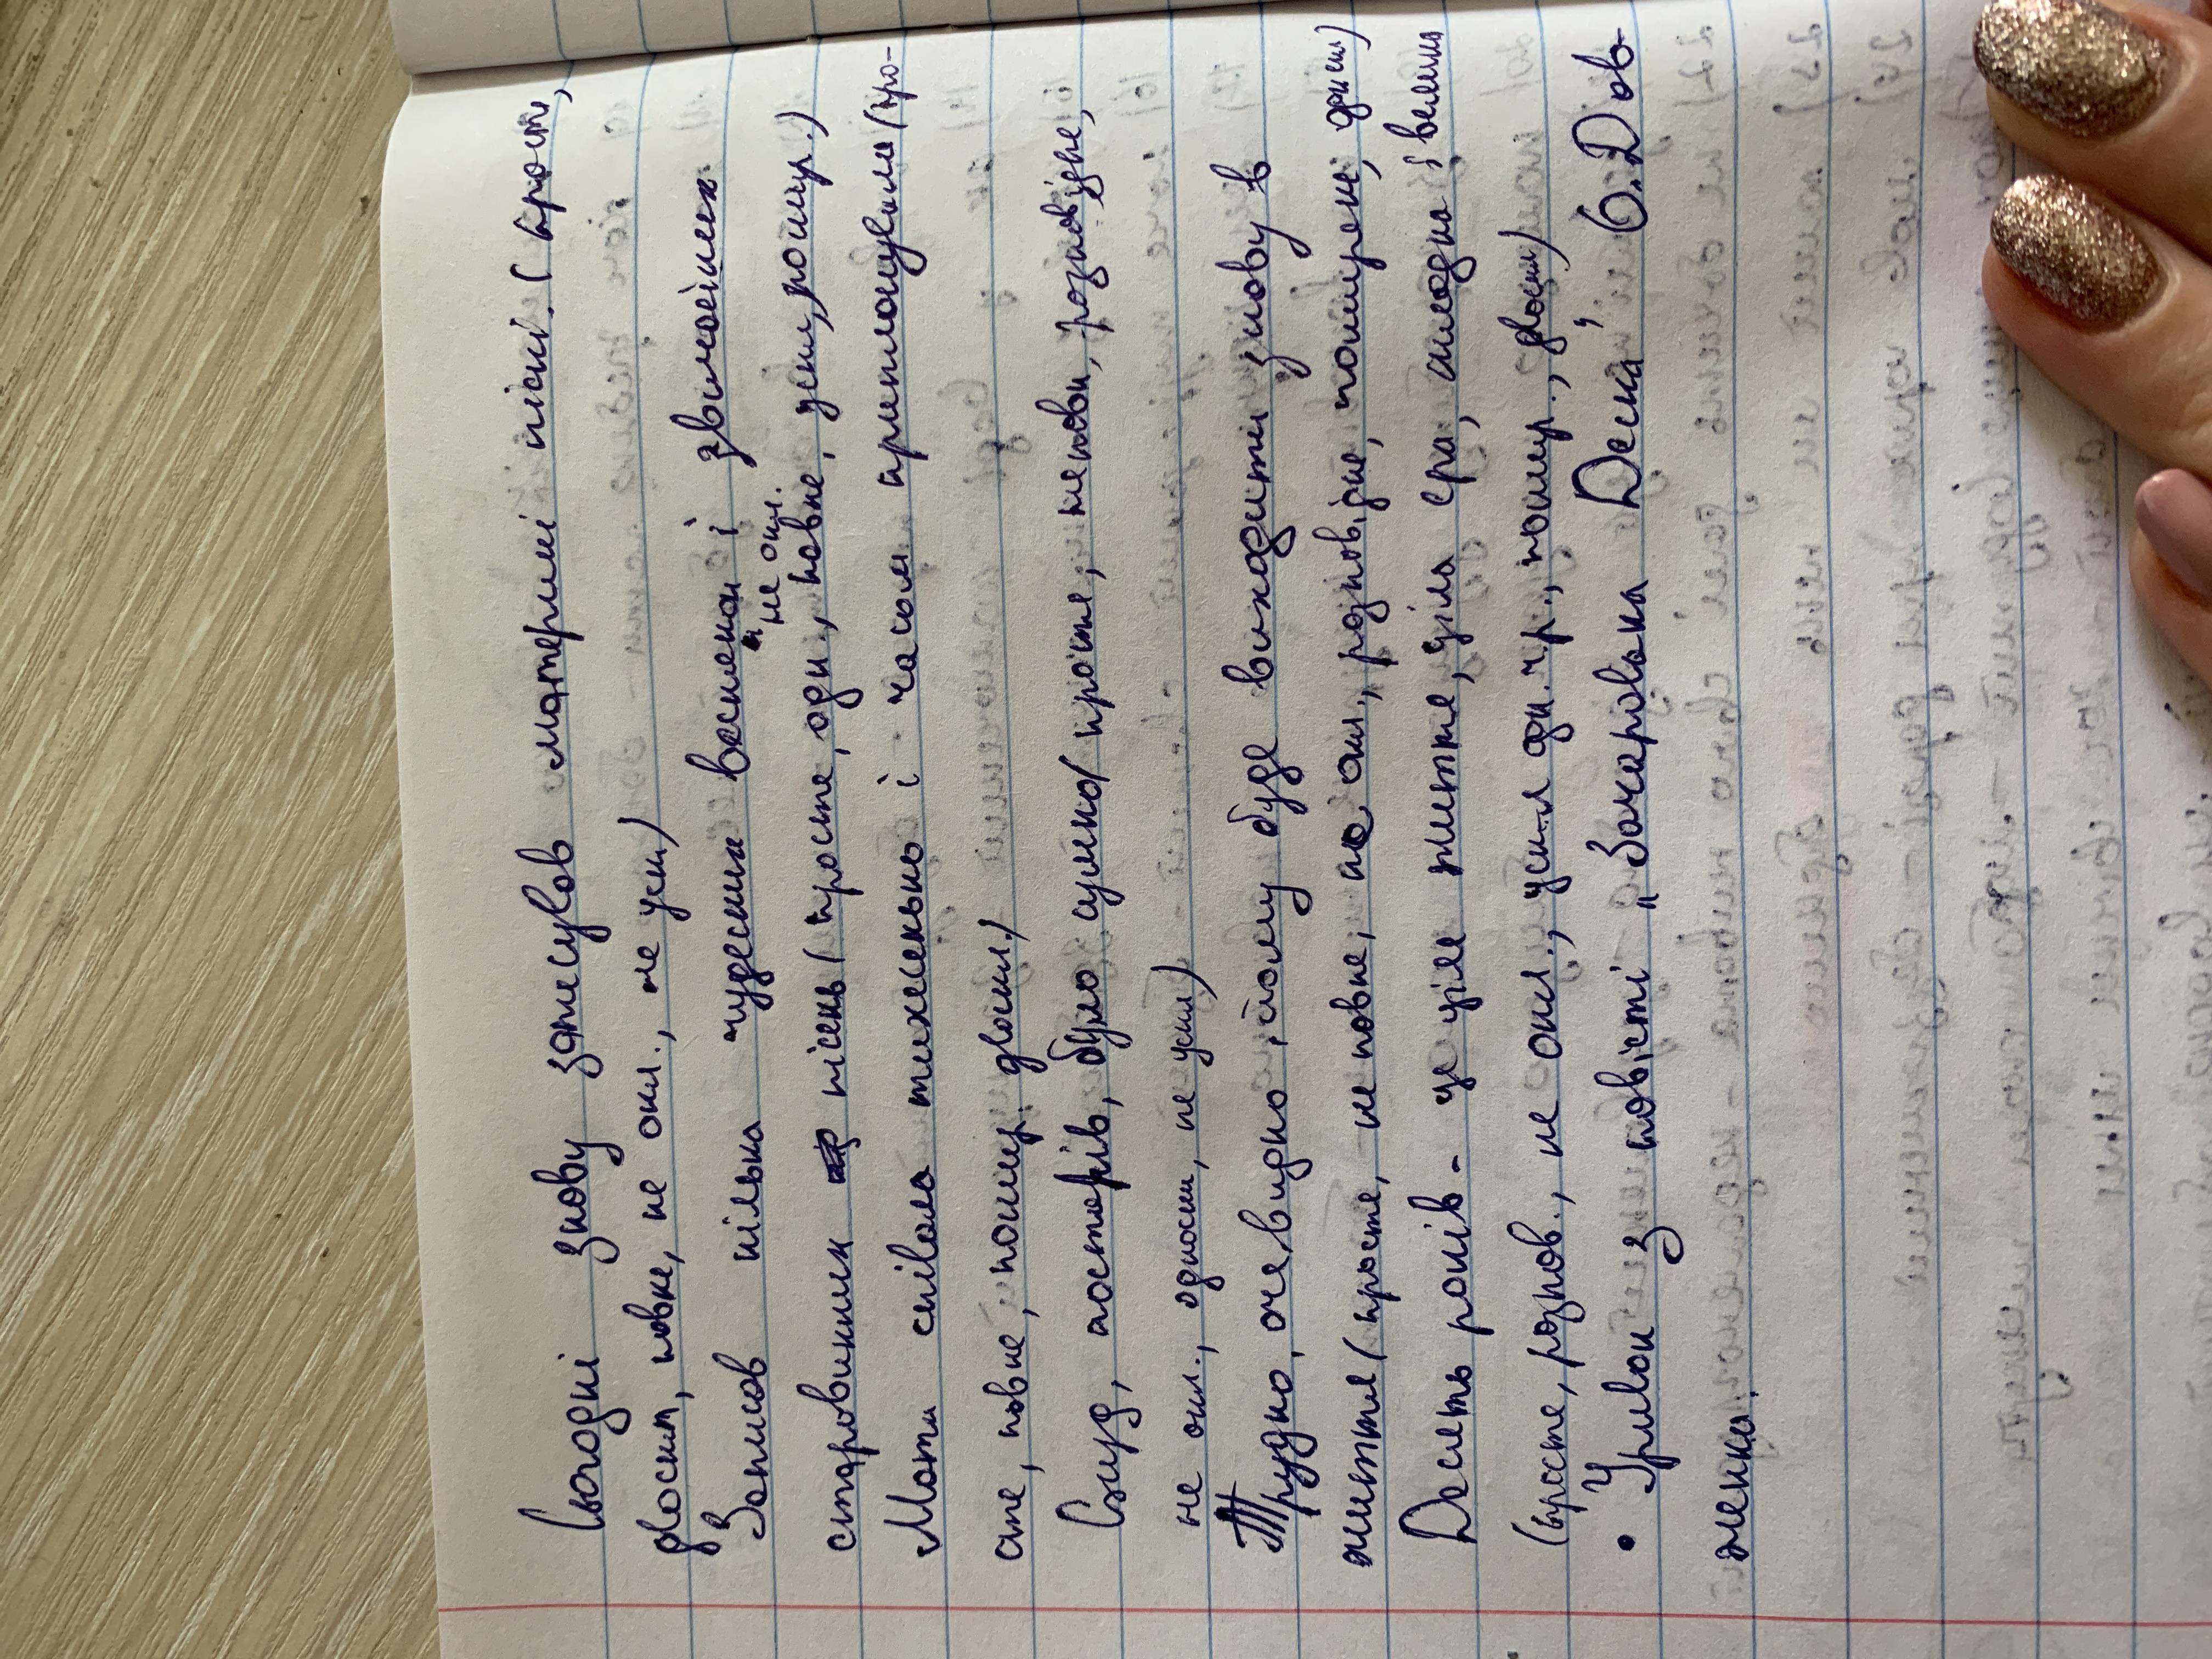 Сьогодні знову записував материні пісні. (прост,
двоскл, повне, не окл., не уск)
Записав кілька чудесних веснянок і звичайних
не окл.
старовинних пісень (просте, одн, повне, ускл, пошир.)
Мати співала тихесенько і часом приплющувала (про-
сте, повне, пошир. двоскл.)
Сміх, дотепів, було сумно (просте, неповн, розповідне,
не окл., односкл, не уск)
Трудно, очевидно, йому буде виходити зимову в
життя (просте, не повне, не окл, розповідне, поширене, одн скл)
Десять років - це ціле життя, ціла ера, складна і велика
(просте, розпов., не окл., ускл одн. чр., пошир., двоскл)
• Уривок з повісті „Зачарована Десна", О. Дов-
женка.